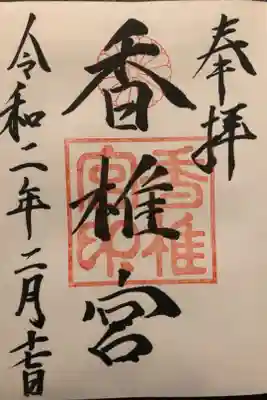 奉拝
香椎宮
香椎宮印
令和二年二月十七日